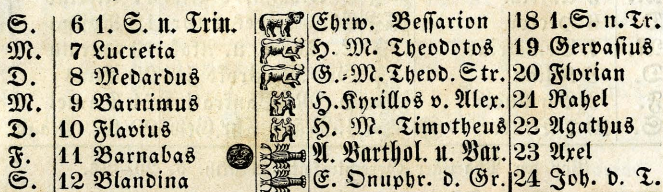 S. 6 1. S. n. Trin. Ehrw. Bessarion 18 1. S. n. Tr.
M. 7 Lucretia H. M. Theodotos 19 Gervasius
D. 8 Medardus G.-M. Theod. Str. 20 Florian
M. 9 Barnimus H. Kyrillos v. Alex. 21 Rahel
D. 10 Flavius H. M. Timotheus 22 Agathus
F. 11 Barnabas A. Barthol. u. Bar. 23 Axel
S. 12 Blandina E. Onuphr. d. Gr. 24 Joh. d. T.